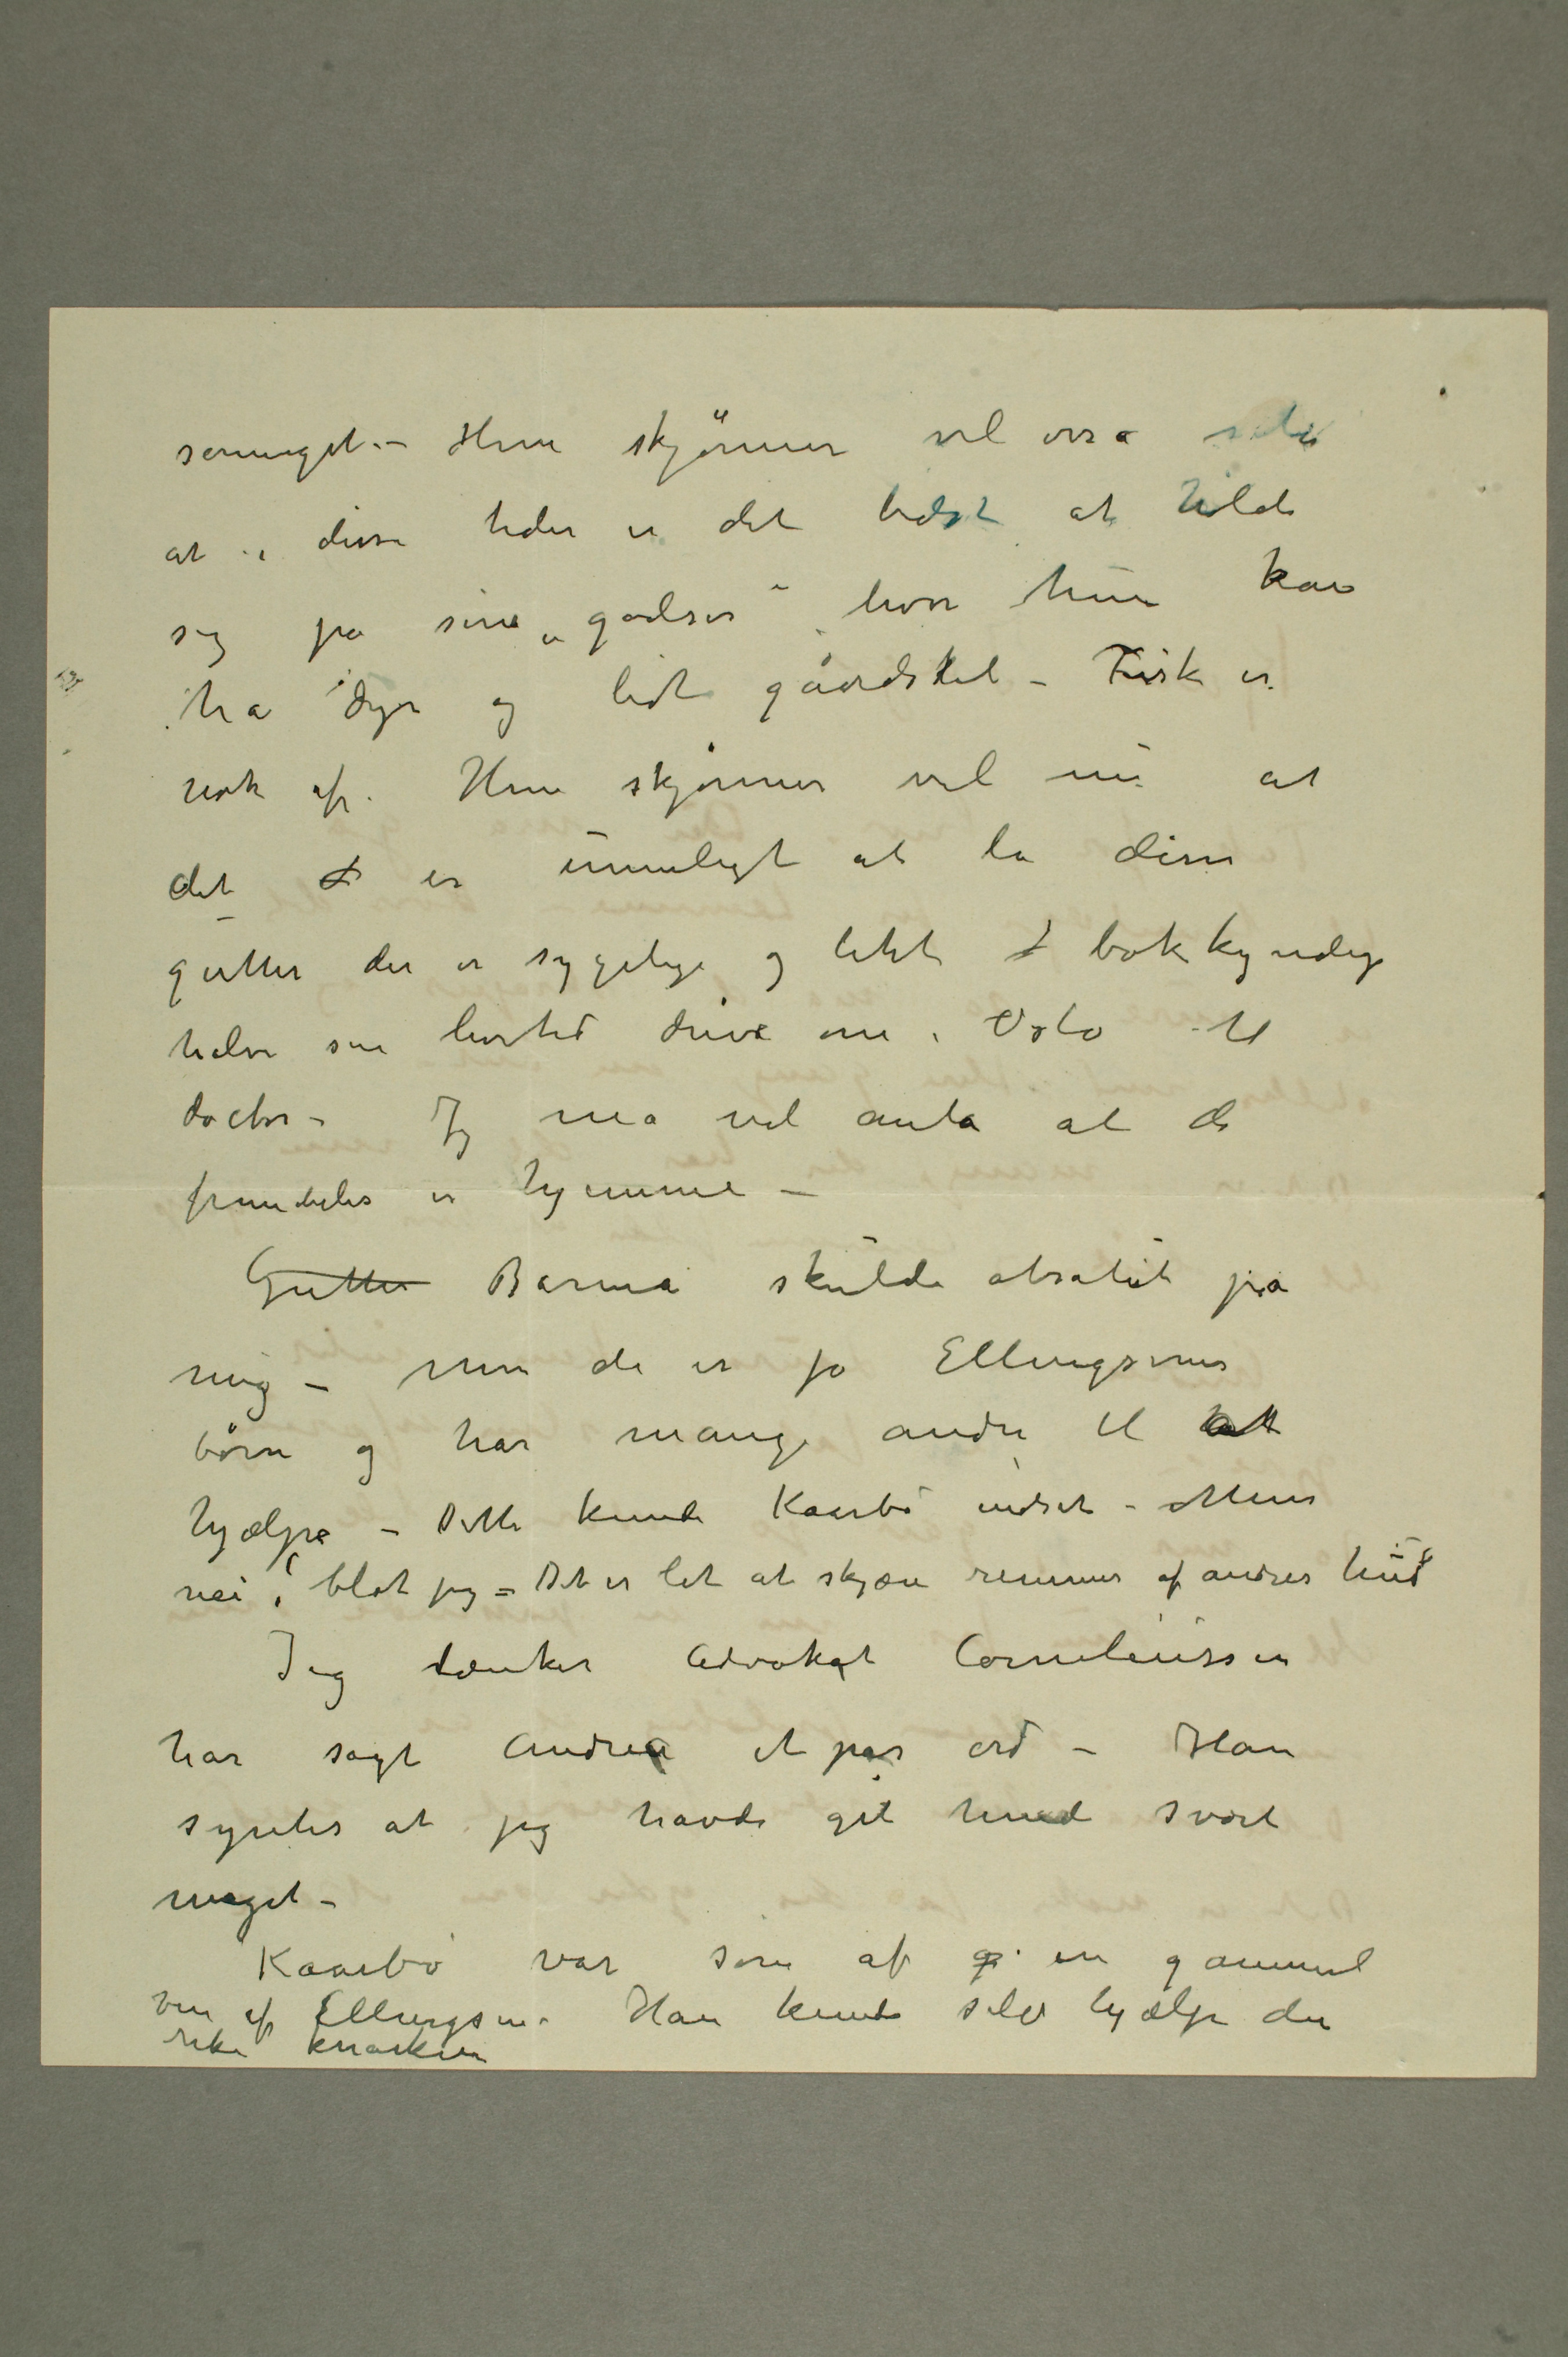 sørnæget. – Hun skjönner vel osså selv
at i disse tider er det bedst at holde
sig på sine „godser“ hvor hun kan
ha dyr og lidt gåardstel – Fisk er
nok af. Hun skjønner vel nu at
det er umuligt at la disse
gutter der er sygelige og lidt bokkyndige
halve sin levetid drive om i Oslo til
doctor – Jeg må vel anta at de
fremdeles er hjemme –
Gutter Barna skulde absolut på
mig – Men de er jo Ellingsens
børn og har mange andre til at
hjælpe – Dette kunde Kaarbø indset – Men
nei, blot jeg – Det er let at skjære remmer af andres hud
Jeg tænker Advokat Corneliussen
har sagt Andrea et par ord – Han
syntes at jeg havde git hende svært
meget –
Kaarbø var søn af en gammel
ven af Ellingsen. Han kunde selv hjælpe den
rike knarken